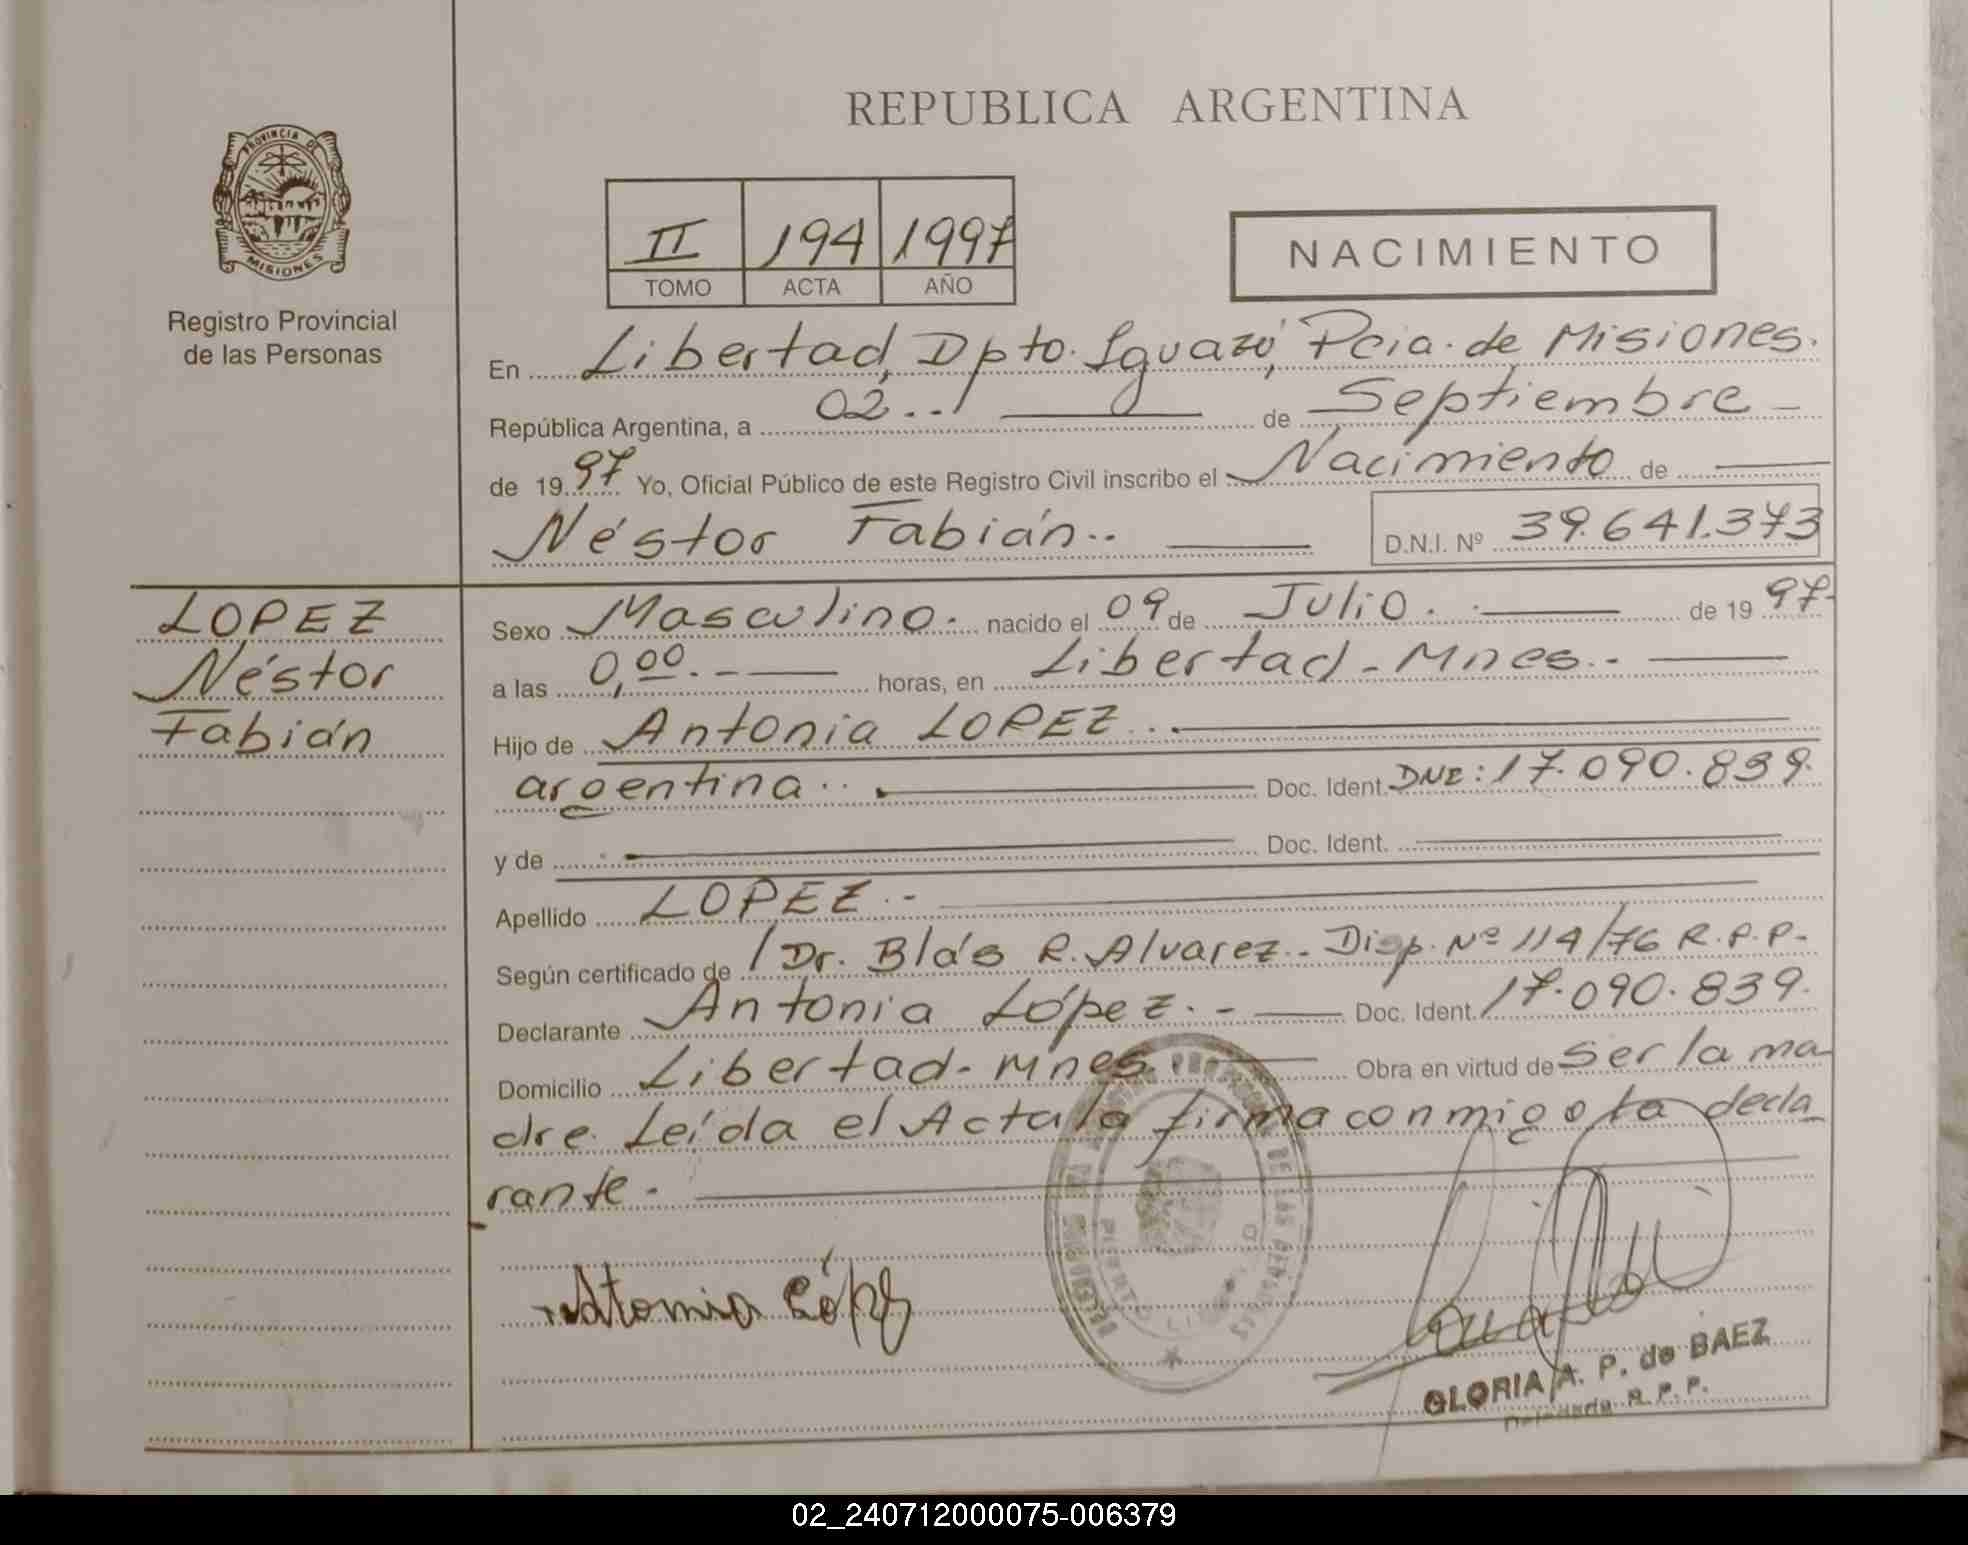 REPUBLICA ARGENTINA
PROVINCIA DE
MISIONES
Registro Provincial
de las Personas
II 194 1997
TOMO ACTA AÑO
NACIMIENTO
En Libertad, Dpto. Iguazú, Pcia. de Misiones.
República Argentina, a 02.. de Septiembre -
de 1997 Yo, Oficial Público de este Registro Civil inscribo el Nacimiento de
Néstor Fabián.. D.N.I. Nº 39.641.373
LOPEZ
Néstor
Fabián
Sexo Masculino. nacido el 09 de Julio. de 1997-
a las 0,00.- horas, en Libertad - Mnes.-
Hijo de Antonia LOPEZ..
argentina.. Doc. Ident. DNI: 17.090.839.
y de Doc. Ident.
Apellido LOPEZ.-
Según certificado de / Dr. Blás R. Alvarez.- Disp. Nº 114/76 R.P.P.-
Declarante Antonia López.- Doc. Ident. 17.090.839.
Domicilio Libertad - Mnes. Obra en virtud de ser la ma
dre. Leída el Acta la firma conmigo la decla
rante.-
Antonia López
GLORIA A. P. de BAEZ
Delegada R. P. P.
02_240712000075-006379